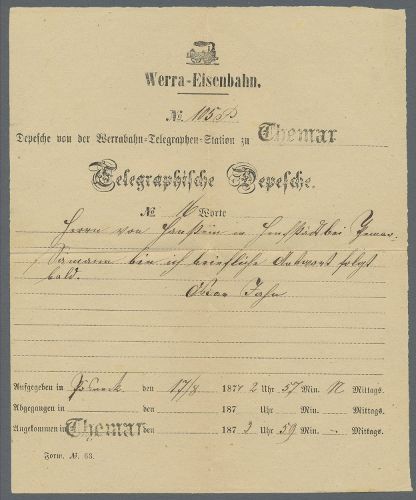 Werra-Eisenbahn.
No. 105 P
Depesche von der Werrabahn-Telegraphen-Station zu Themar
Telegraphische Depesche.
No. 16 Worte
Herrn von Hanstein in Henfstädt bei Themar.
bin ich briefliche Antwort folgt
bald.
Oscar Jahn
Aufgegeben in Pösneck den 17/8 1877 2 Uhr 57 Min. N Mittags.
Abgegangen in den 187 Uhr Min. Mittags.
Angekommen in Themar den 187 3 Uhr 59 Min. – Mittags.
Form. No. 63.